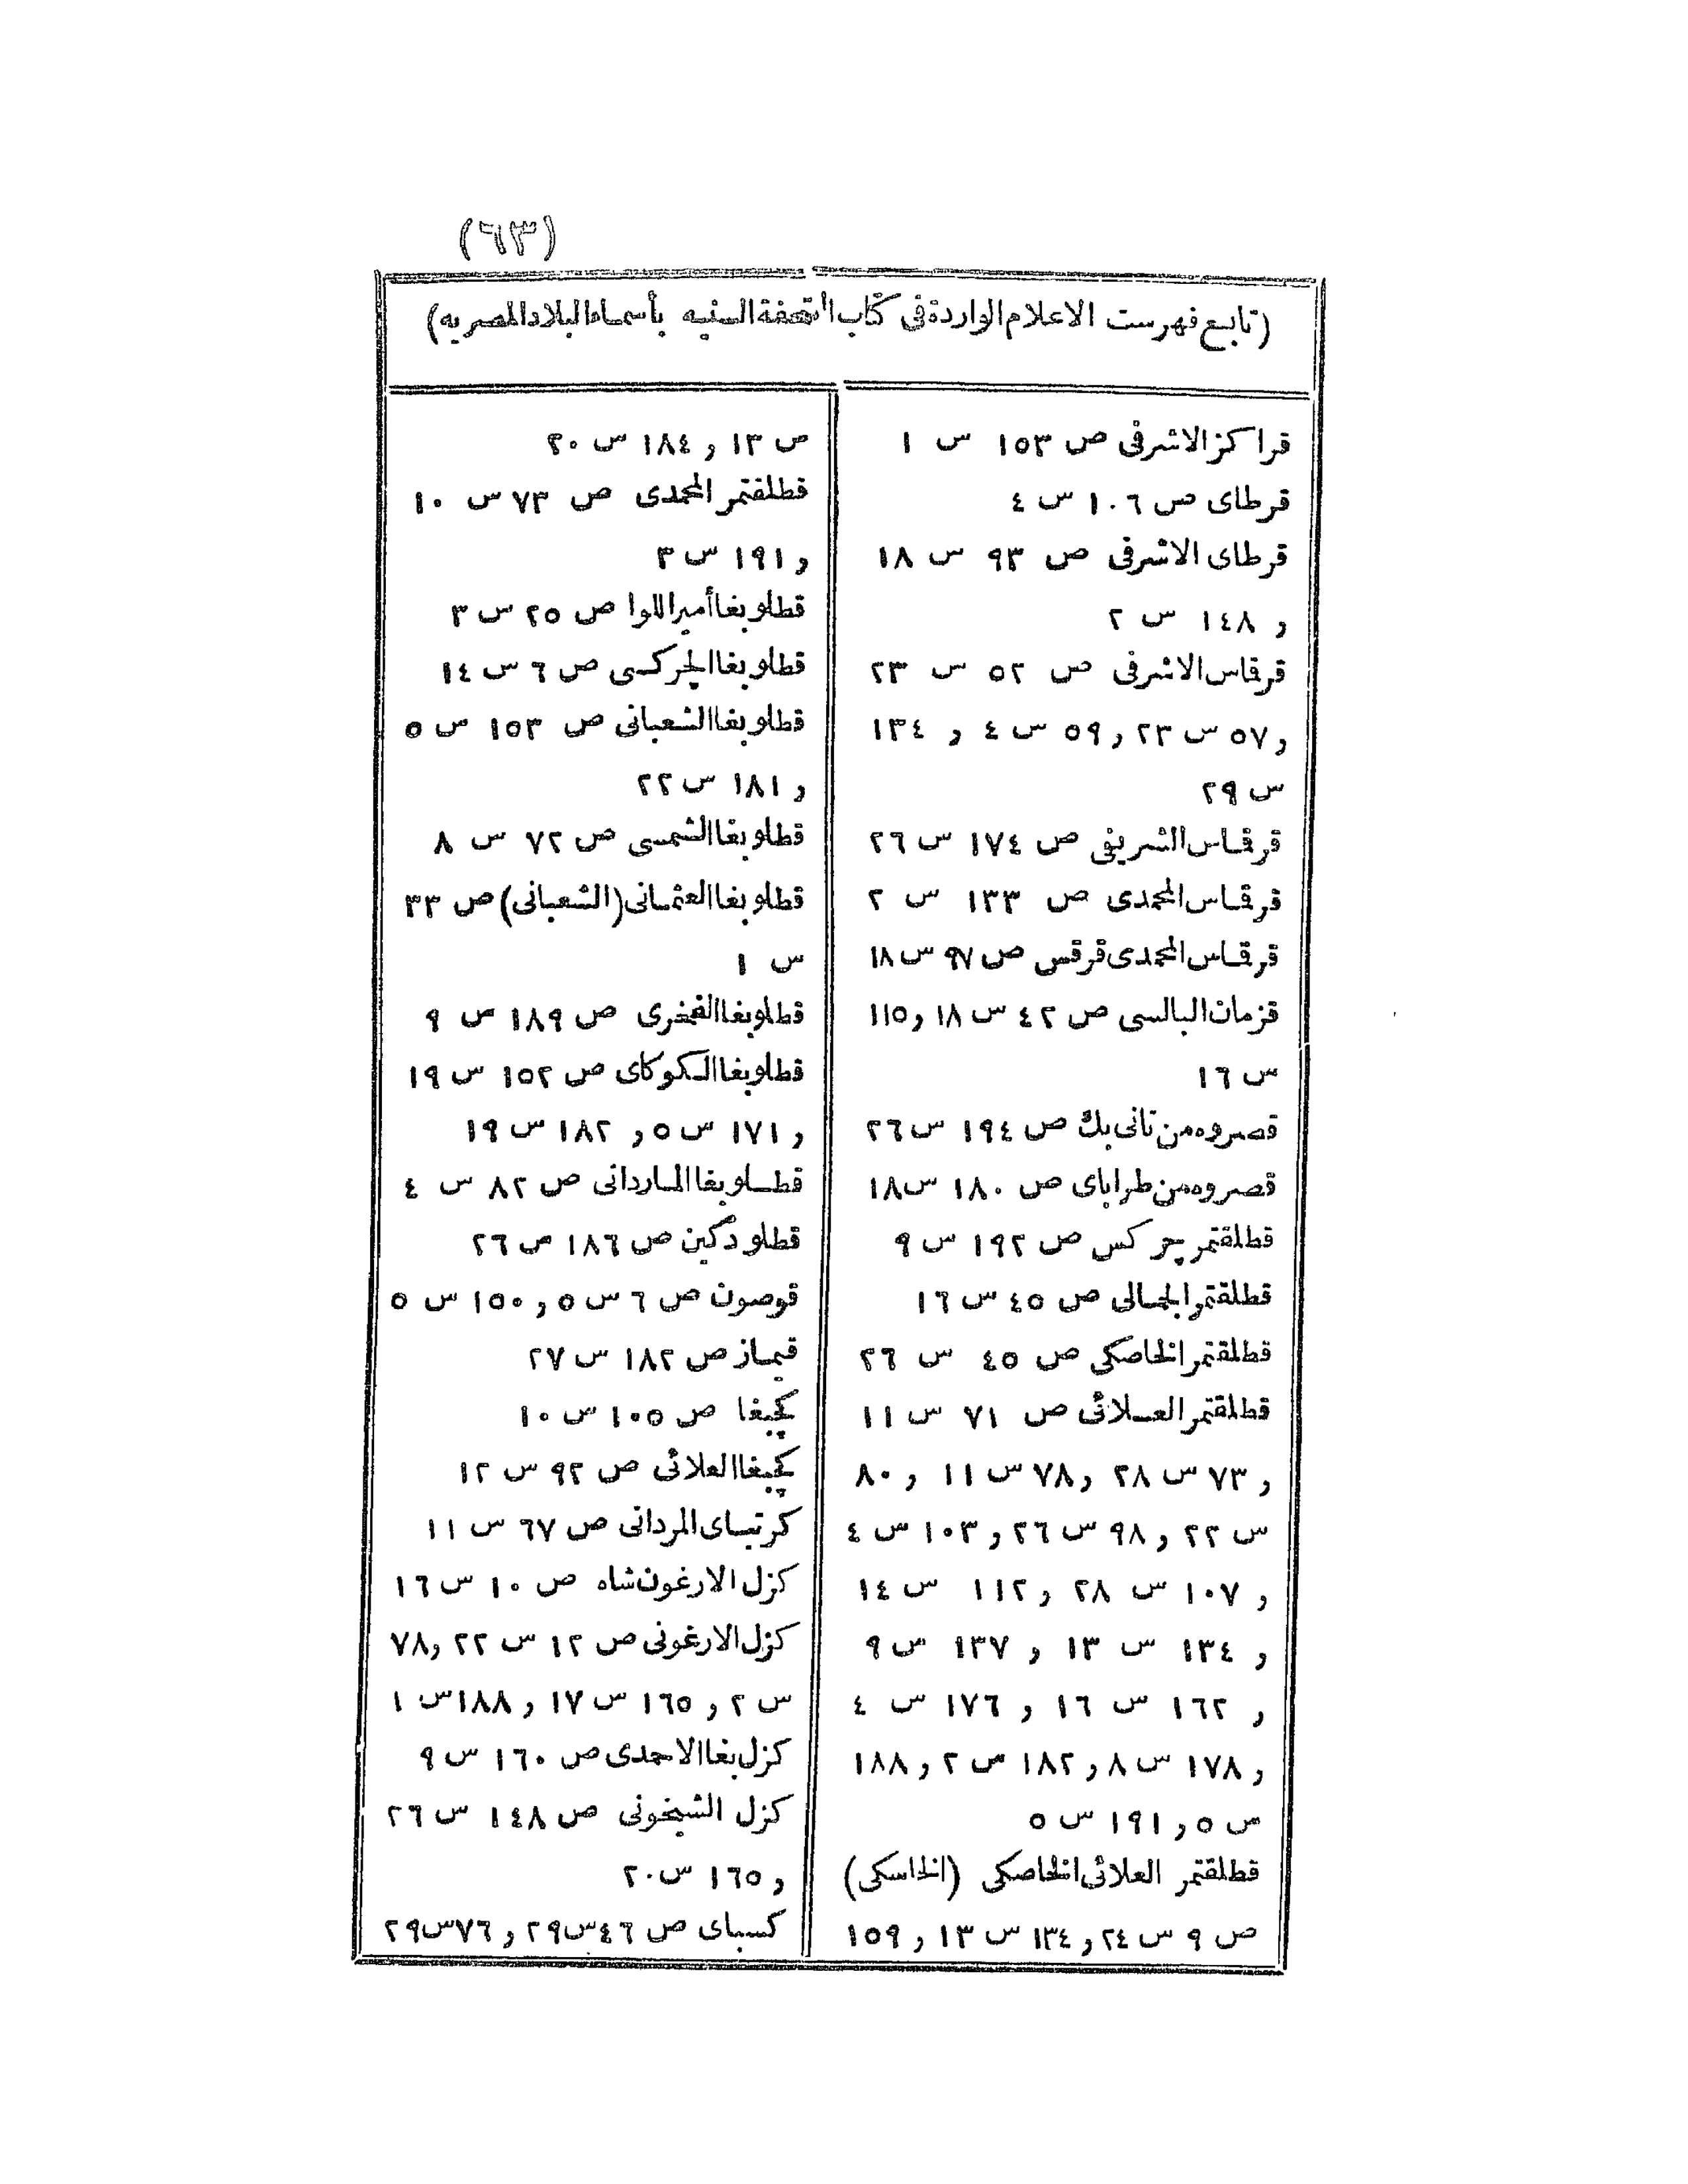 (٦٣)
(تابع فهرست الاعلام الواردة فى كتاب التحفة السنيه بأسماء البلاد المصريه)
قراكز الاشرفى ص ١٥٣ س ١
قرطاى ص ١٠٦ س ٤
قرطاى الاشرفى ص ٩٣ س ١٨
و ١٤٨ س ٢
قرقاس الاشرفى ص ٥٢ س ٢٣
و٥٧ س ٢٣ و٥٩ س ٤ و ١٣٤
س ٢٩
قرقاس الشريفى ص ١٧٤ س ٢٦
قرقاس المحمدى ص ١٣٣ س ٢
قرقاس المحمدى قرقس ص ٩٧ س ١٨
قزمان البالسى ص ٤٢ س ١٨ و١١٥
س ١٦
قصروه من تانى بك ص ١٩٤ س ٢٦
قصروه من طراباى ص ١٨٠ س ١٨
قطلقتمر چركس ص ١٩٢ س ٩
قطلقتمر الجمالى ص ٤٥ س ١٦
قطلقتمر الخاصكى ص ٤٥ س ٢٦
قطلقتمر العلائى ص ٧١ س ١١
و ٧٣ س ٢٨ و٧٨ س ١١ و ٨٠
س ٢٢ و ٩٨ س ٢٦ و ١٠٣ س ٤
و ١٠٧ س ٢٨ و ١١٢ س ١٤
و ١٣٤ س ١٣ و ١٣٧ س ٩
و ١٦٢ س ١٦ و ١٧٦ س ٤
و ١٧٨ س ٨ و ١٨٢ س ٢ و ١٨٨
س ٥ و ١٩١ س ٥
قطلقتمر العلائى الخاصكى (الخاسكى)
ص ٩ س ٢٤ و ١٣٤ س ١٣ و ١٥٩
ص ١٣ و ١٨٤ س ٢٠
قطلقتمر المحمدى ص ٧٣ س ١٠
و ١٩١ س ٣
قطلوبغا أمير اللوا ص ٢٥ س ٣
قطلوبغا الچركسى ص ٦ س ١٤
قطلوبغا الشعبانى ص ١٥٣ س ٥
و ١٨١ س ٢٢
قطلوبغا الشمسى ص ٧٢ س ٨
قطلوبغا العثمانى (الشعبانى) ص ٣٣
س ١
قطلوبغا الفخرى ص ١٨٩ ص ٩
قطلوبغا الكوكاى ص ١٥٢ س ١٩
و ١٧١ س ٥ و ١٨٢ س ١٩
قطلوبغا الماردانى ص ٨٢ س ٤
قطلو دكين ص ١٨٦ ص ٢٦
قوصون ص ٦ س ٥ و ١٥٠ س ٥
قيماز ص ١٨٢ س ٢٧
كچيغا ص ١٠٥ س ١٠
كچيغا العلائى ص ٩٢ س ١٢
كرتباى المردانى ص ٦٧ س ١١
كزل الارغون شاه ص ١٠ س ١٦
كزل الارغونى ص ١٢ س ٢٢ و٧٨
س ٢ و ١٦٥ س ١٧ و ١٨٨ س ١
كزل بغا الاحمدى ص ١٦٠ س ٩
كزل الشيخونى ص ١٤٨ س ٢٦
و ١٦٥ س ٢٠
كسباى ص ٤٦ س ٢٩ و ٧٦ س ٢٩